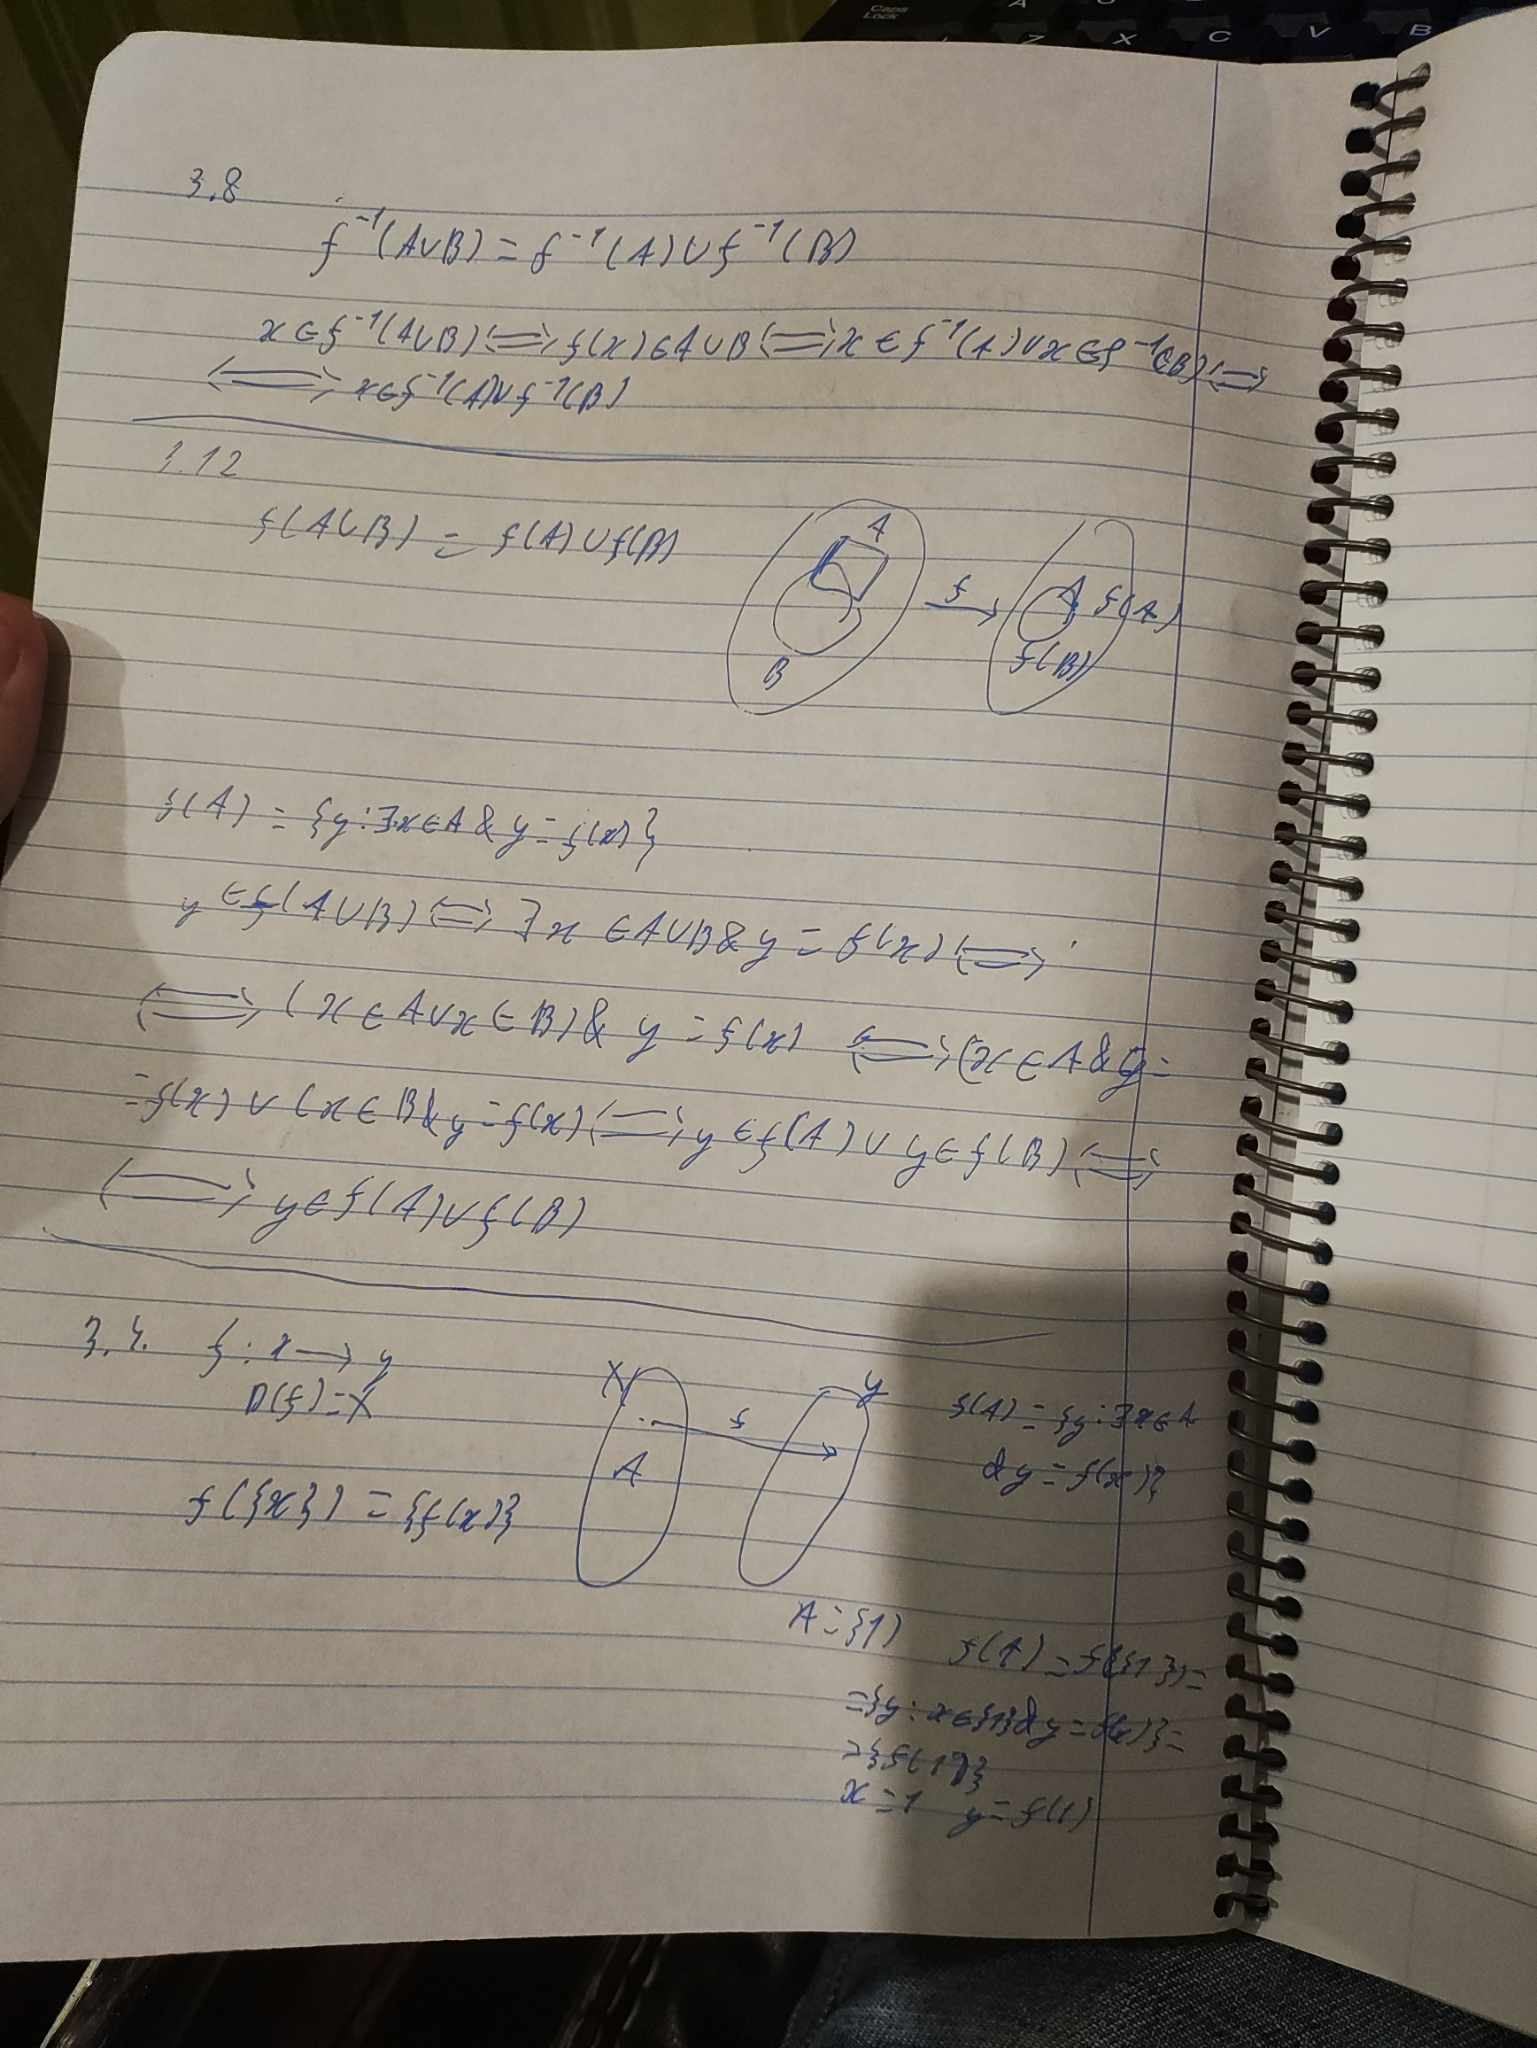 Caps Lock
A
Z X C V B
3.8
f⁻¹(A∪B) = f⁻¹(A)∪f⁻¹(B)
x∈f⁻¹(A∪B) ⟺ f(x)∈A∪B ⟺ x∈f⁻¹(A)∨x∈f⁻¹(B) ⟺
⟺ x∈f⁻¹(A)∪f⁻¹(B)
3.12
f(A∪B) = f(A)∪f(B)
A
f
f(A)
B
f(B)
f(A) = {y:∃x∈A & y=f(x)}
y∈f(A∪B) ⟺ ∃x∈A∪B & y=f(x) ⟺
⟺ (x∈A∨x∈B) & y=f(x) ⟺ (x∈A & y=
=f(x) ∨ (x∈B & y=f(x) ⟺ y∈f(A) ∨ y∈f(B) ⟺
⟺ y∈f(A)∪f(B)
f: x → y
D(f)=X
f({x}) = {f(x)}
X
f
y
A
f(A) = {y:∃x∈A
& y=f(x)}
A={1)
f(A)=f({1})=
={y: x∈{1} & y=f(x)}=
={f(1)}
x=1 y=f(1)